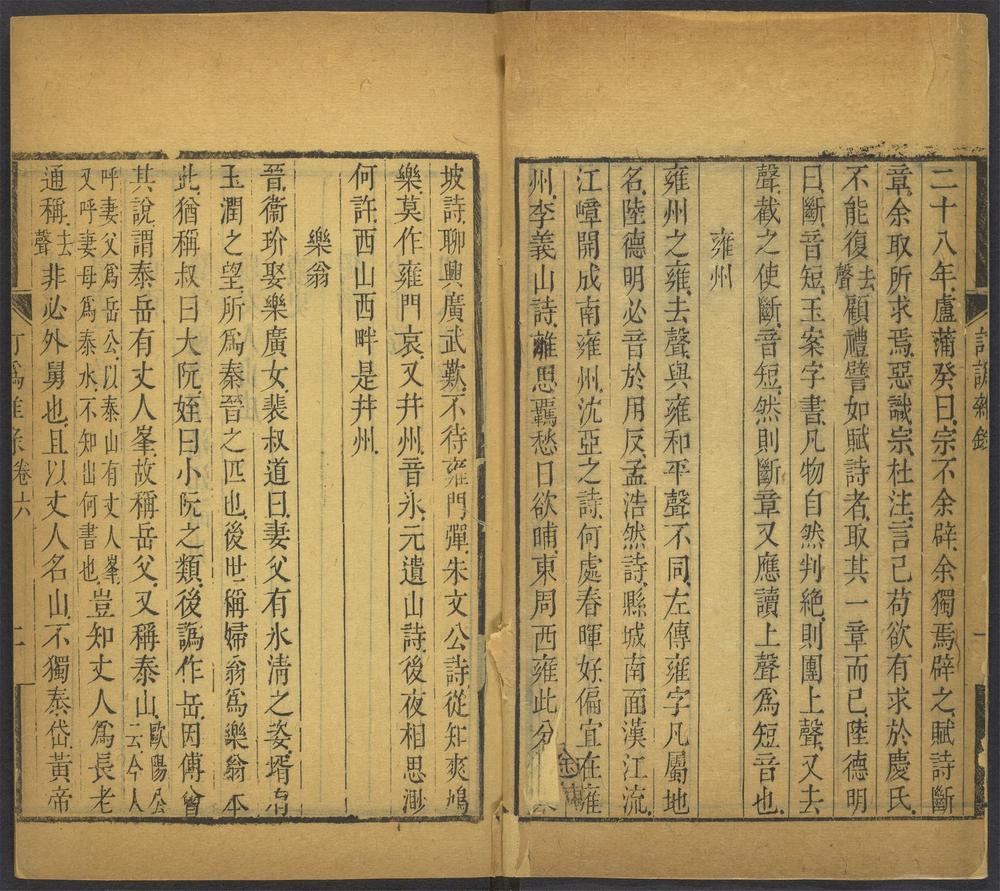 二十八年盧蒲癸曰宗不余辟余獨焉辟之賦詩斷
章余取所求焉惡識宗杜注言己苟欲有求於慶氏
不能復去聲顧禮譬如賦詩者取其一章而已陸德明
曰斷音短玉案字書凡物自然判絕則團上聲又去
聲截之使斷音短然則斷章又應讀上聲爲短音也
雍州
雍州之雍去聲與雍和平聲不同左傳雍字凡屬地
名陸德明必音於用反孟浩然詩縣城南面漢江流
江嶂開成南雍州沈亞之詩何處春暉好偏宜在雍
州李義山詩離思羈愁日欲晡東周西雍此分
坡詩聊興廣武歎不待雍門彈朱文公詩從知爽鳩
樂莫作雍門哀又幷州音氷元遺山詩後夜相思渺
何許西山西畔是幷州
樂翁
晉衞玠娶樂廣女裴叔道曰妻父有氷清之姿壻有
玉潤之望所爲秦晉之匹也後世稱婦翁爲樂翁本
此猶稱叔曰大阮姪曰小阮之類後譌作岳因傅會
其說謂泰岳有丈人峯故稱岳父又稱泰山歐陽公云今人
呼妻父爲岳公以泰山有丈人峯
又呼妻母爲泰水不知出何書也豈知丈人爲長老
通稱去聲非必外舅也且以丈人名山不獨泰岱黃帝
訂譌雜錄
一
訂譌雜錄卷六
二